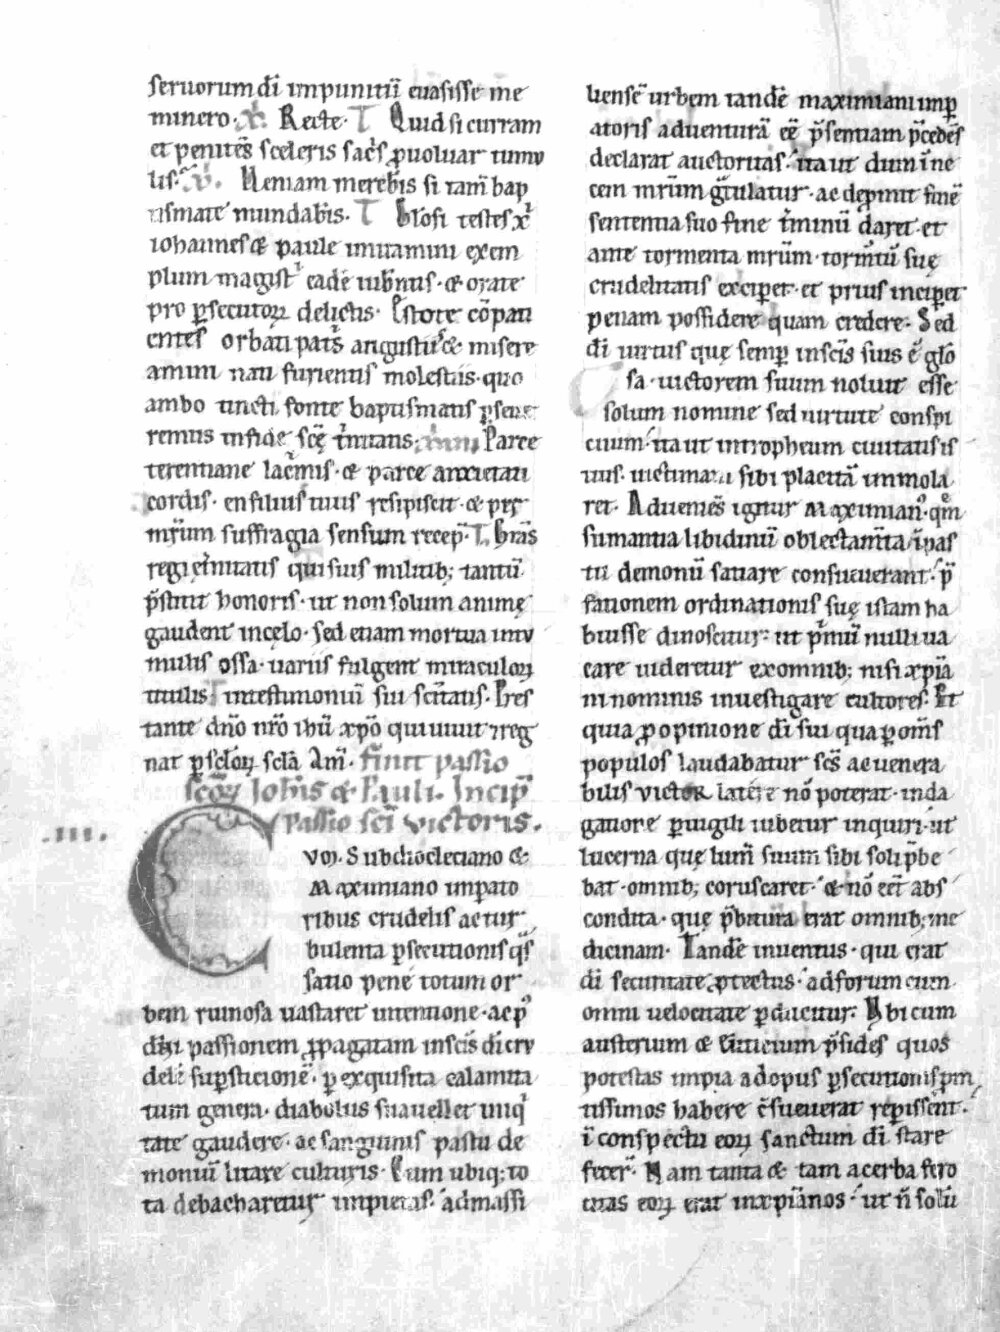 seruorum dī impunitū euasisse me
minero. Recte. T Quid si curram
et penitēs sceleris sacis ꝓuoluar tumu
lis. V. Veniam merebis si tam̄ bap
tismate mundabis. T Glosi testes xp̄i
iohannes & paule imitamini exem
plum magistri eadē iubentis. & orate
pro ꝑsecutoꝝ delictis. Estote cōpati
entes orbati patris angustiis. & misere
amini nati furientis molestiis. quo
ambo tincti fonte baptismatis ꝑseue
remus in fide scę trinitatis. Parce
terentiane lacrimis. & parce anxietati
cordis. en filius tuus resipiscit. & per
mr̄um suffragia sensum recep̄. T. Gr̄as
regi ęt̄nitatis qui suis militib; tantū
p̄stitit honoris. ut non solum animę
gaudent in cęlo. sed etiam mortua in tu
mulis ossa. uariis fulgent miraculoꝝ
titulis in testimoniū sui sc̄itatis. Pres
tante dn̄o nr̄o ihū xp̄o qui uiuit ⁊ reg
nat ꝑ sc̄loꝝ scla Am̄. Finit passio
sc̄oꝝ Iohis & Pauli. Incip̄
passio sc̄i victoris.
.III.
Cvm Sub diocleciano &
Maximiano impato
ribus crudelis ac tur
bulenta ꝑsecutionis q̄s
satio penè totum or
bem ruinosa uastaret intentione. ac p̄
dn̄i passionem ꝓpagatam in sc̄is dī cru
delē suꝑsticionē. ꝑ exquisita calamita
tum genera. diabolus se auellet iniq
tate gaudere. ac sanguinis pastu de
moniū litare culturis. Cum ubiq; to
ta debacharetur impietas. ad massi
liensē urbem tandē maximiani imꝑ
atoris aduenturā eē p̄sentiam p̄cedēs
declarat auctoritas. ita ut dum īne
cem mr̄um gr̄tulatur. ac deꝓmit finē
sententia suo fine t̄minū daret. et
ante tormenta mr̄um. tormtū suę
crudelitatis exciperet. et prius inciperet
penam possidere quam credere. Sed
dī uirtus quę semꝑ in sc̄is suis ē glo
sa. uictorem suum noluit esse
solum nomine sed uirtute conspi
cuum. ita ut in tropheum ciuitatis is
tius. uictimam sibi placitā immola
ret. Adueniēs igitur Maximian. qm̄
sumantia libidinū oblectamta ī pas
tu demonū satiare consueuerant. p̄
fationem ordinationis suę istam ha
buisse dinoscitur. ut p̄mū nulli ua
care uideretur ex omnib; nisi xp̄ia
ni nominis inuestigare cultores. Et
quia ꝓ opinione dī sui qua ꝑ om̄s
populos laudabatur sc̄s ac uenera
bilis victor latére nō poterat. inda
gatiore ꝑuigili iubetur inquiri. ut
lucerna quę lum̄ suum sibi soli p̄be
bat. omnib; coruscaret. & nō eēt abs
condita. quę p̄bitura erat omnib; me
dicinam. Tandē inuentus. qui erat
dī securitate ꝓtectus. ad forum cum
omni uelocitate ꝑducitur. Vbi cum
austerium & eutitium p̄sides quos
potestas impia ad opus ꝑsecutionis prom
tissimos habere c̄sueuerat repissent.
ī conspectu eoꝝ sanctum dī stare
fecer̄. Nam tanta & tam acerba fero
citas eoꝝ erat in xp̄ianos. ut n̄ solū